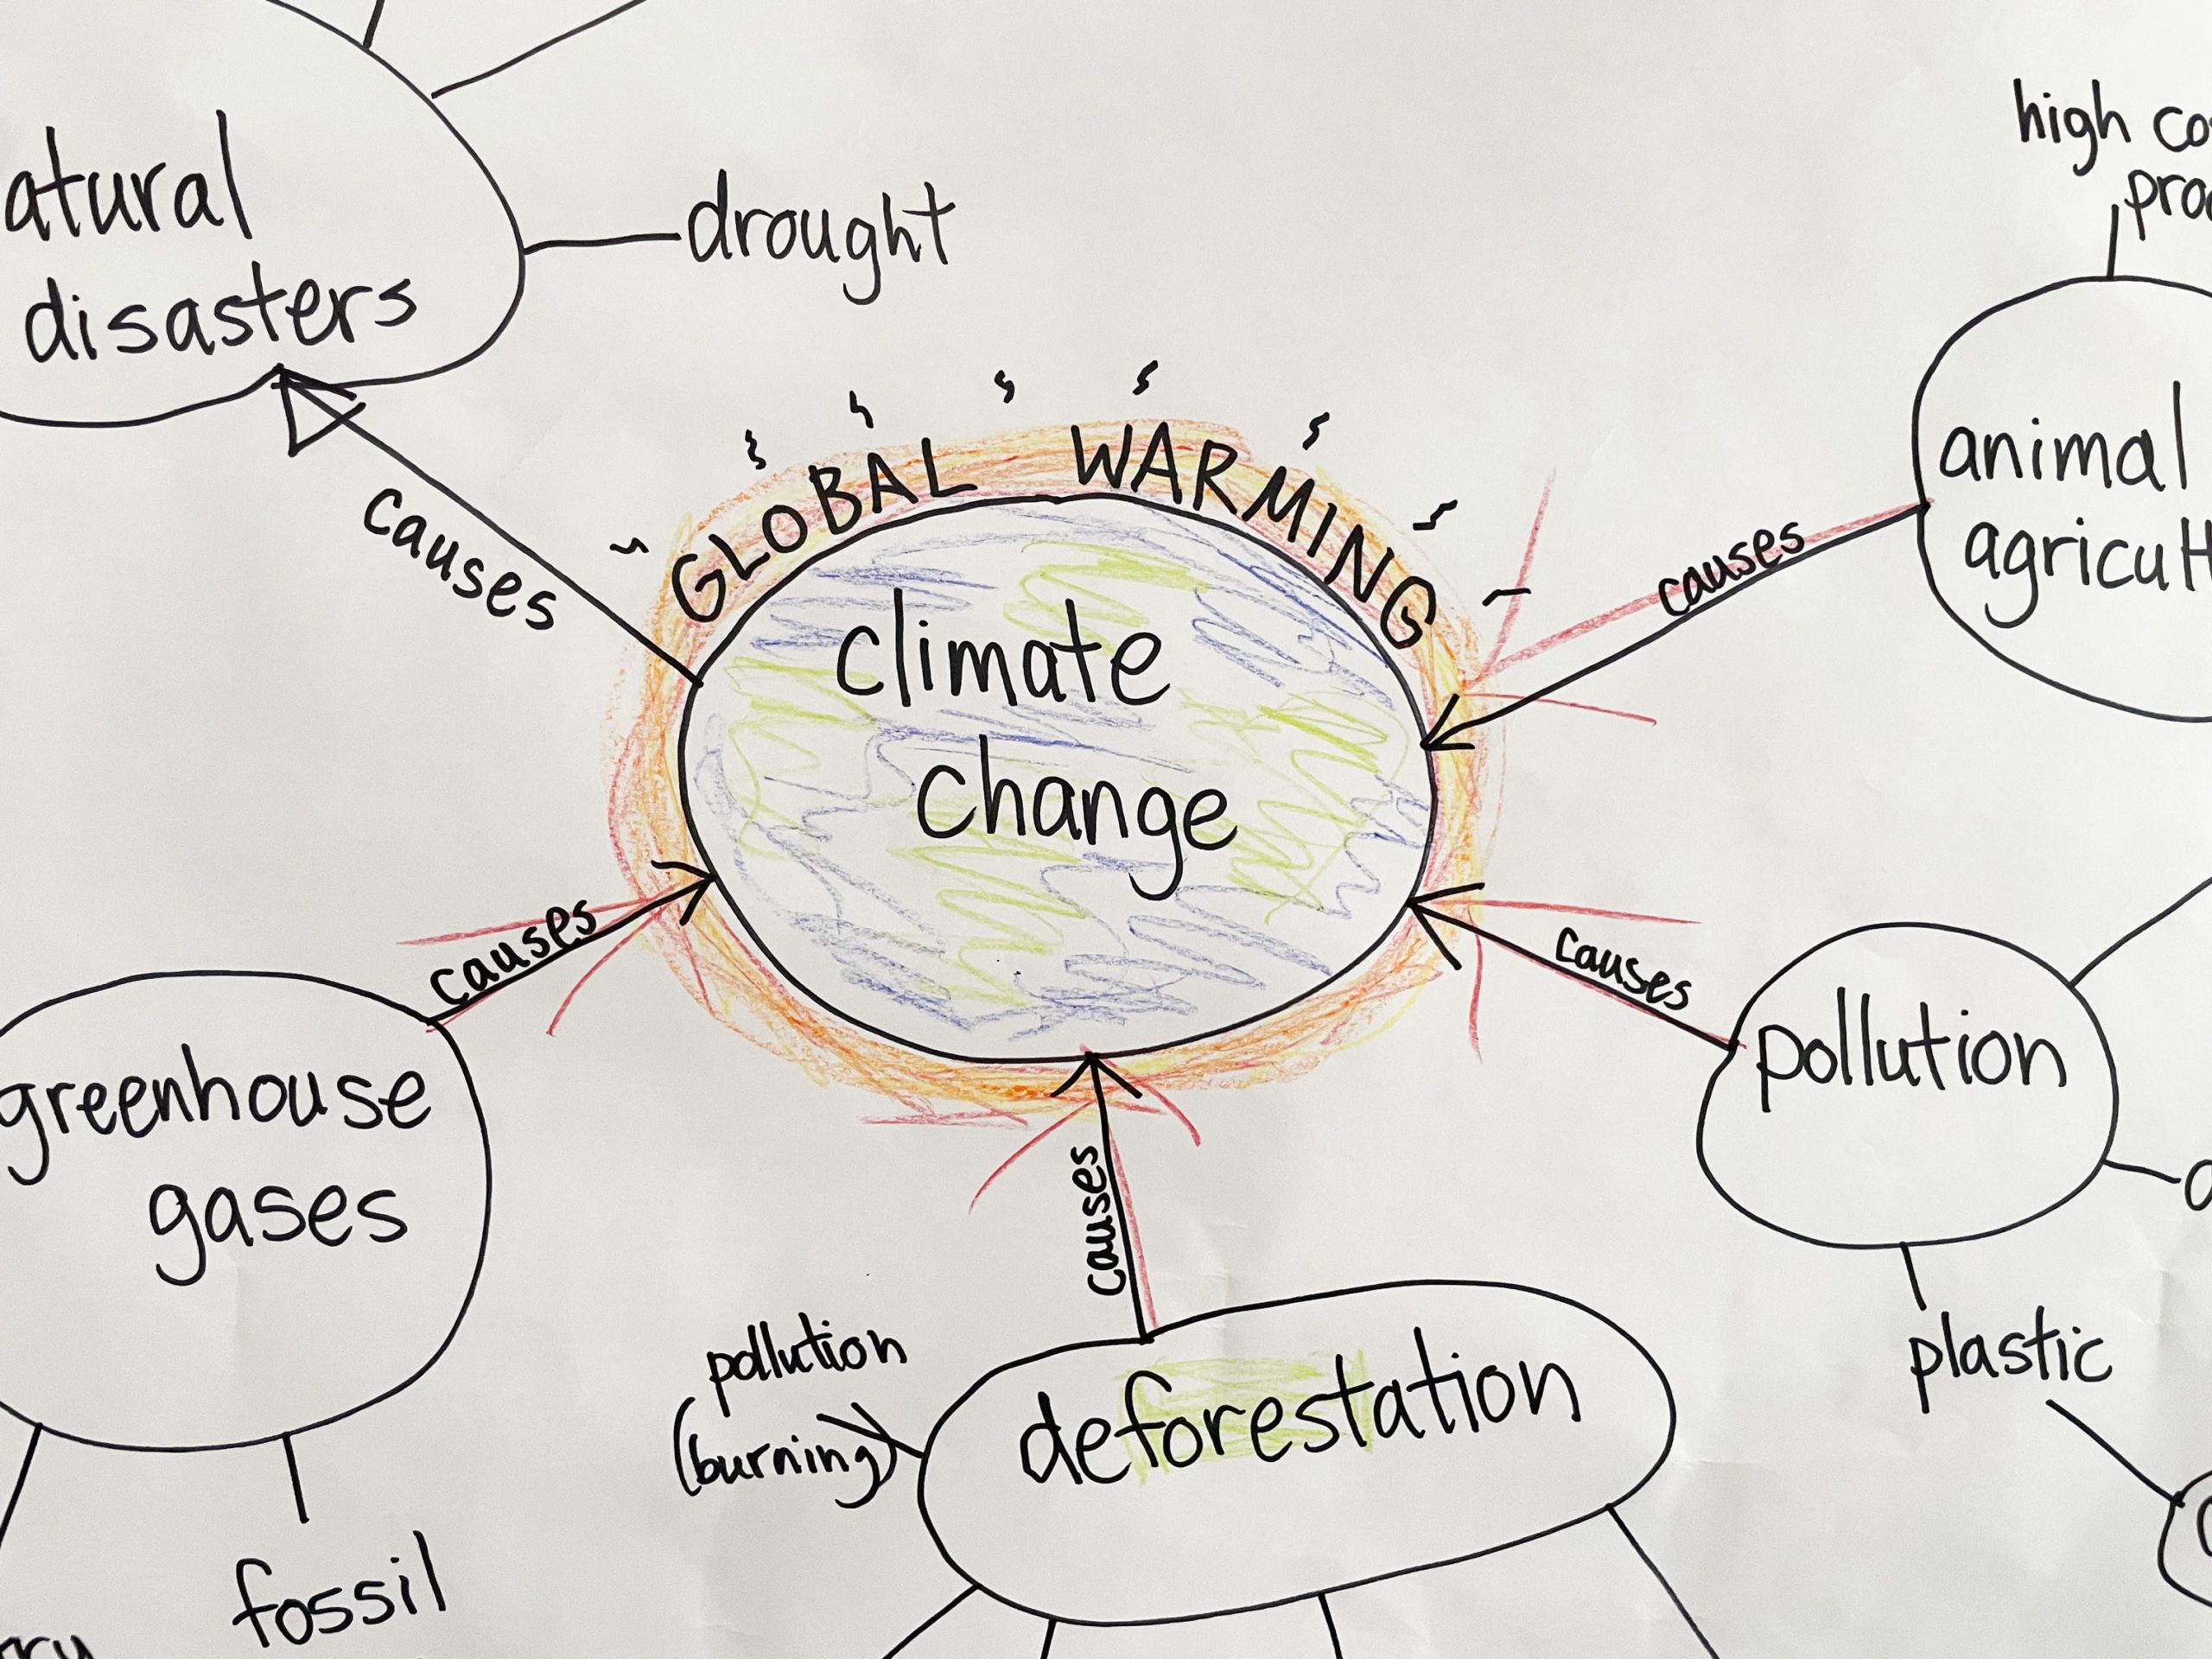 disasters
drought
causes
GLOBAL WARMING
climate
change
high
animal
causes
causes
greenhouse
gases
causes
pollution
causes
plastic
pollution
(burning)
deforestation
fossil